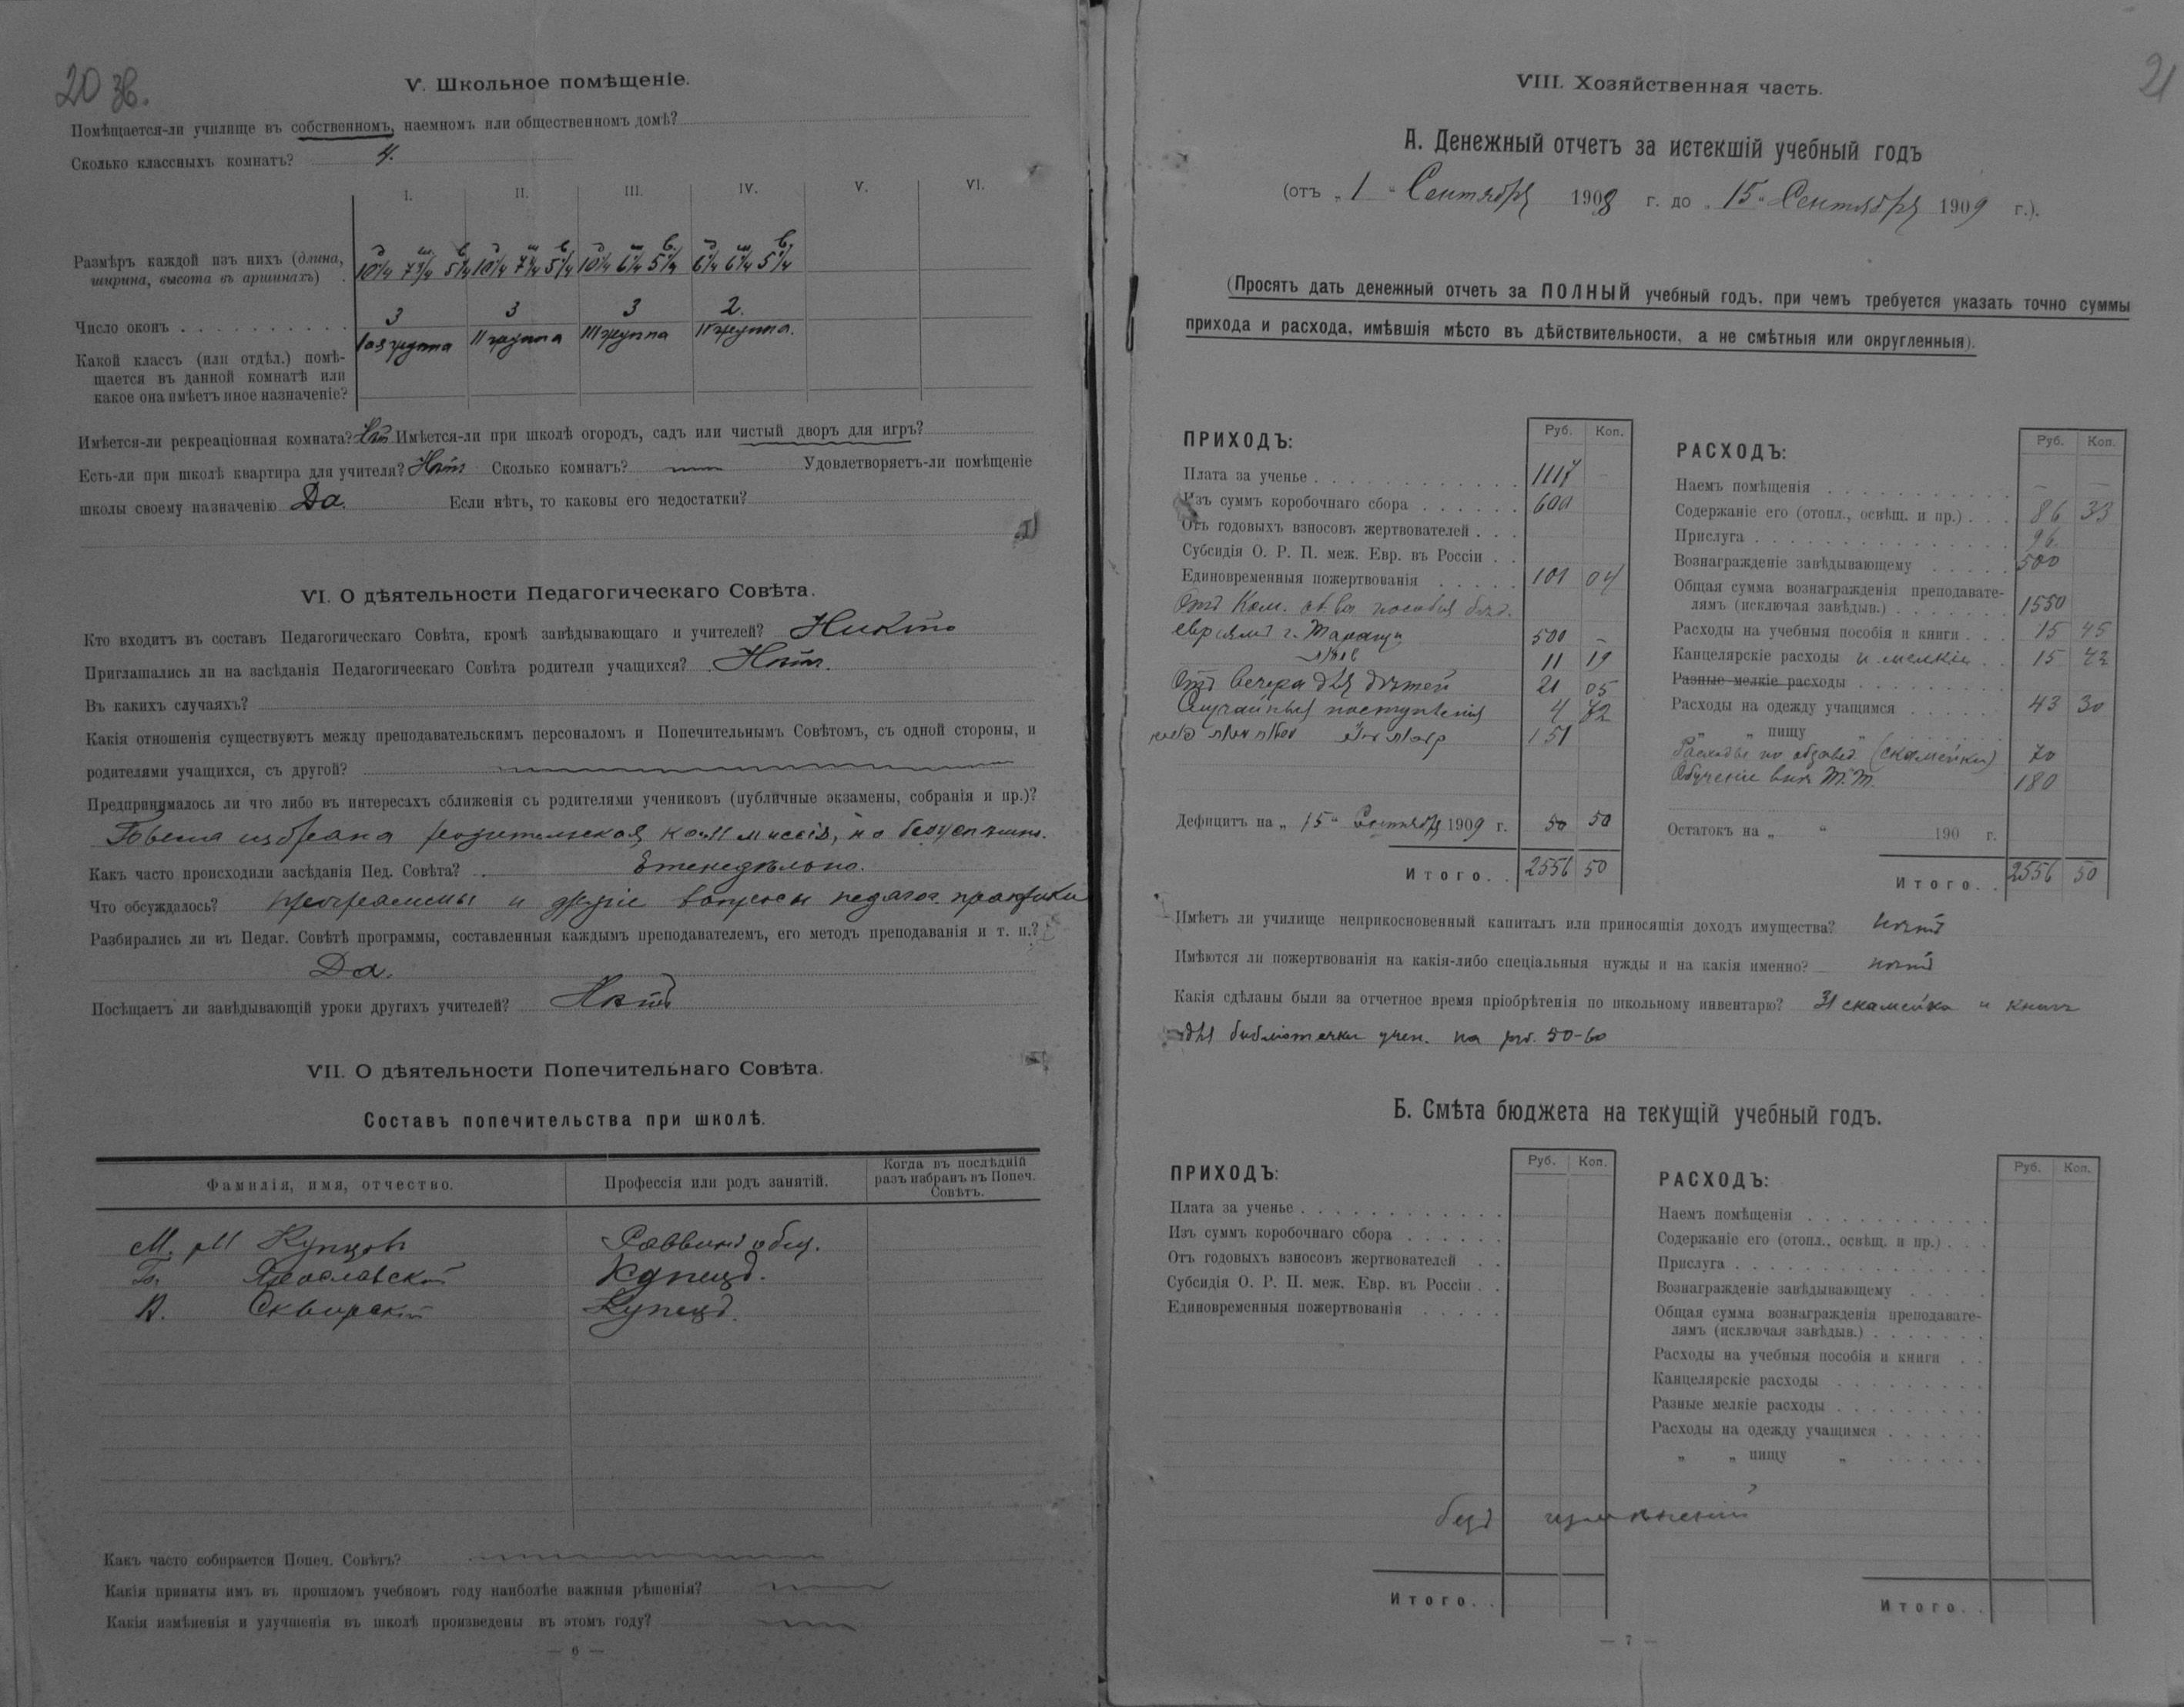 20 зв.
V. Школьное помѣщеніе.
Помѣщается-ли училище въ собственномъ, наемномъ или общественномъ домѣ?
Сколько классныхъ комнатъ? 4.
I. II. III. IV. V. VI.
Размѣръ каждой изъ нихъ (длина,
ширина, высота въ аршинахъ)
Число оконъ 3 3 3 2.
Iая группа II группа III группа IV группа.
Какой классъ (или отдѣл.) помѣ-
щается въ данной комнатѣ или
какое она имѣетъ иное назначеніе?
Имѣется-ли рекреаціонная комната? Нѣт Имѣется-ли при школѣ огородъ, садъ или чистый дворъ для игръ?
Есть-ли при школѣ квартира для учителя? Нѣтъ Сколько комнатъ? Удовлетворяетъ-ли помѣщеніе
школы своему назначенію Да. Если нѣтъ, то каковы его недостатки?
VI. О дѣятельности Педагогическаго Совѣта.
Кто входитъ въ составъ Педагогическаго Совѣта, кромѣ завѣдывающаго и учителей? Никто
Приглашались ли на засѣданія Педагогическаго Совѣта родители учащихся? Нѣтъ.
Въ какихъ случаяхъ?
Какія отношенія существуютъ между преподавательскимъ персоналомъ и Попечительнымъ Совѣтомъ, съ одной стороны, и
родителями учащихся, съ другой?
Предпринималось ли что либо въ интересахъ сближенія съ родителями учениковъ (публичные экзамены, собранія и пр.)?
избрана родительская коммиссія, но безуспѣшно.
Какъ часто происходили засѣданія Пед. Совѣта? Еженедѣльно.
Что обсуждалось? программы и другіе вопросы педагог. практики
Разбирались ли въ Педаг. Совѣтѣ программы, составленныя каждымъ преподавателемъ, его методъ преподаванія и т. п.?
Да.
Посѣщаетъ ли завѣдывающій уроки другихъ учителей? Нѣтъ
VII. О дѣятельности Попечительнаго Совѣта.
Составъ попечительства при школѣ.
Фамилія, имя, отчество. Профессія или родъ занятій. Когда въ послѣдній
разъ избранъ въ Попеч.
Совѣтъ.
М. М Купцовъ Раввинъ общ.
Ярославскій Купецъ.
Сквирскій Купецъ.
Какъ часто собирается Попеч. Совѣтъ?
Какія приняты имъ въ прошломъ учебномъ году наиболѣе важныя рѣшенія?
Какія измѣненія и улучшенія въ школѣ произведены въ этомъ году?
— 6 —
21
VIII. Хозяйственная часть.
А. Денежный отчетъ за истекшій учебный годъ
(отъ „1“ Сентября 1908 г. до „15“ Сентября 1909 г.).
(Просятъ дать денежный отчетъ за ПОЛНЫЙ учебный годъ, при чемъ требуется указать точно суммы
прихода и расхода, имѣвшія мѣсто въ дѣйствительности, а не смѣтныя или округленныя).
ПРИХОДЪ: Руб. Коп.
Плата за ученье 1117 –
Изъ суммъ коробочнаго сбора 600
Отъ годовыхъ взносовъ жертвователей
Субсидія О. Р. П. меж. Евр. въ Россіи
Единовременныя пожертвованія 101 04
Отъ Ком. об-ва пособія бѣд.
евреямъ г. Таращи 500 –
11 19
Отъ вечера для дѣтей 21 05
Случайныя поступленія 4 72
151
Дефицитъ на „15“ Сентября 1909 г. 50 50
Итого. . 2556 50
РАСХОДЪ: Руб. Коп.
Наемъ помѣщенія – –
Содержаніе его (отопл., освѣщ. и пр.) 86 33
Прислуга 96
Вознагражденіе завѣдывающему 500
Общая сумма вознагражденія преподавате-
лямъ (исключая завѣдыв.) 1550
Расходы на учебныя пособія и книги 15 45
Канцелярскіе расходы и мелкіе 15 42
Разные мелкіе расходы
Расходы на одежду учащимся 43 30
„ „ пищу „
Расходы по обзавед. (скамейки) 70
Обученіе 180
Остатокъ на „ “ 190 г.
Итого. . 2556 50
Имѣетъ ли училище неприкосновенный капиталъ или приносящія доходъ имущества? нѣтъ
Имѣются ли пожертвованія на какія-либо спеціальныя нужды и на какія именно? нѣтъ
Какія сдѣланы были за отчетное время пріобрѣтенія по школьному инвентарю? 31 скамейка и книги
для библіотечки учен. на руб. 50-60
Б. Смѣта бюджета на текущій учебный годъ.
ПРИХОДЪ: Руб. Коп.
Плата за ученье
Изъ суммъ коробочнаго сбора
Отъ годовыхъ взносовъ жертвователей
Субсидія О. Р. П. меж. Евр. въ Россіи
Единовременныя пожертвованія
Итого. .
РАСХОДЪ: Руб. Коп.
Наемъ помѣщенія
Содержаніе его (отопл., освѣщ. и пр.)
Прислуга
Вознагражденіе завѣдывающему
Общая сумма вознагражденія преподавате-
лямъ (исключая завѣдыв.)
Расходы на учебныя пособія и книги
Канцелярскіе расходы
Разные мелкіе расходы
Расходы на одежду учащимся
„ „ пищу „
безъ измѣненій
Итого. .
— 7 —